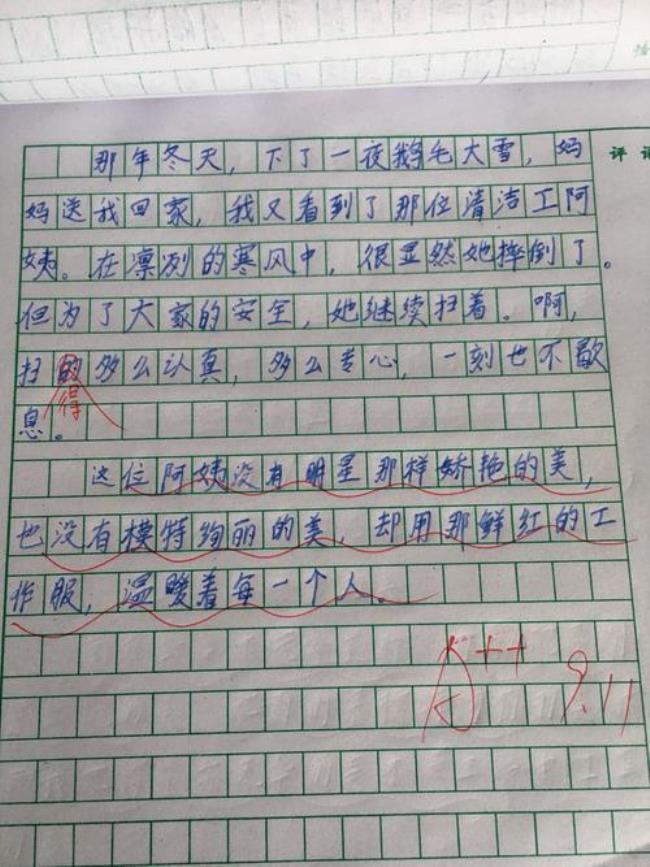 那年冬天，下了一夜鹅毛大雪，妈
评语
妈送我回家，我又看到了那位清洁工阿
姨。在凛冽的寒风中，很显然她摔倒了。
但为了大家的安全，她继续扫着。啊，
扫的多么认真，多么专心，一刻也不歇
得
息。
这位阿姨没有明星那样娇艳的美，
也没有模特绚丽的美，却用那鲜红的工
作服，温暖着每一个人。
A++ 9.11